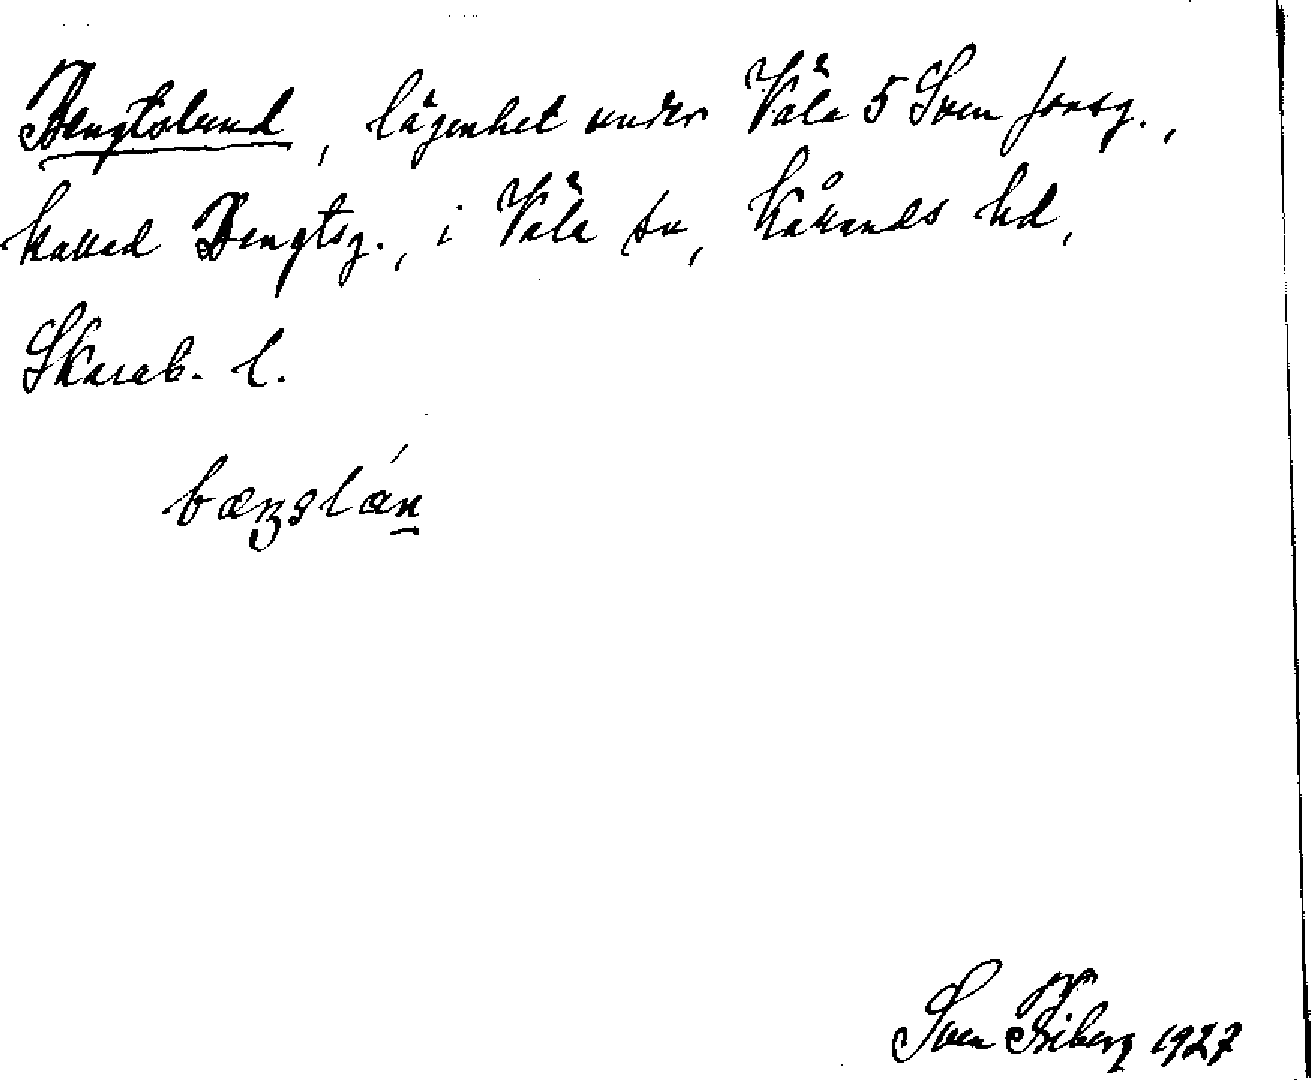 Bengtslund, lägenhet under Våla 5 Sven Jonsg.,
kallad Bengtsg., i Våla sn, Kåkinds hd,
Skarab. l.
Sven Friberg 1927